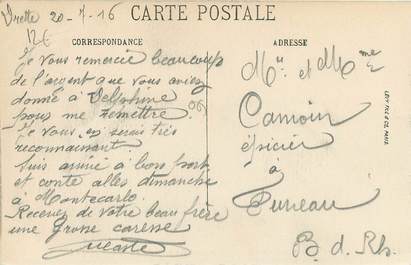 20-7-16
CARTE POSTALE
12€
CORRESPONDANCE
ADRESSE
Je vous remercie beaucoup
de l'argent que vous aviez
donné à Delphine
pour me remettre.
06
Je vous en serais très
reconnaissant.
Suis arrivé à bon port
et conte aller dimanche
à Montecarlo.
Recevez de votre beau frère
une Grosse caresse
Mr et Mme
Camoin
épicier
à
Puneau
B. d. Rh.